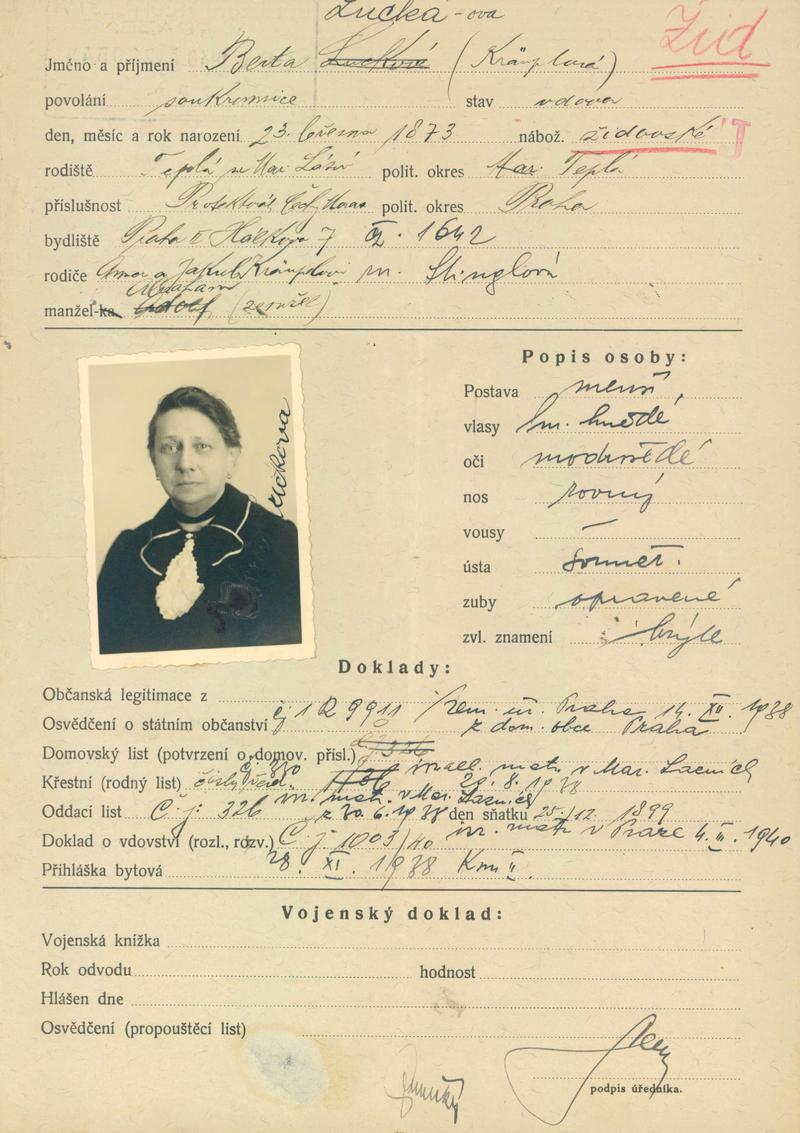 Lucka - ova
Žid
Jméno a příjmení Berta Lucková (Kränplová)
povolání soukromnice stav vdova
den, měsíc a rok narození 23. března 1873 nábož. židovské J
rodiště Teplá u Mar. Lázní polit. okres Mar. Teplá
příslušnost Protektorát Čechy Morava polit. okres Praha
bydliště Praha II Hálkova 7 čp. 1642
rodiče Anna a Jakub Kränplovi n. Stinglová
Abraham
manžel-ka Adolf (zemřel)
Popis osoby:
Postava menší,
vlasy tm. hnědé
oči modrošedé
nos rovný
vousy –
ústa souměr.
zuby opravené
zvl. znamení brýle
Lucková
Doklady:
Občanská legitimace z
Osvědčení o státním občanství čj 1 R 9911 /zem. úř. Praha 14. XII. 1938
z dom. obce Praha
Domovský list (potvrzení o domov. přísl.)
Křestní (rodný list) isr. matr. v Mar. Lázních 20. 8. 1938
isr. matr. v Mar. Lázních
Oddací list Č. j: 326 z 30. 6. 1938 den sňatku 25./12. 1899
Doklad o vdovství (rozl., rozv.) Č j 1003/40 isr. matr v Praze 4. III. 1940
Přihláška bytová 28. XI. 1938 Kom II.
Vojenský doklad:
Vojenská knížka
Rok odvodu hodnost
Hlášen dne
Osvědčení (propouštěcí list)
podpis úředníka.